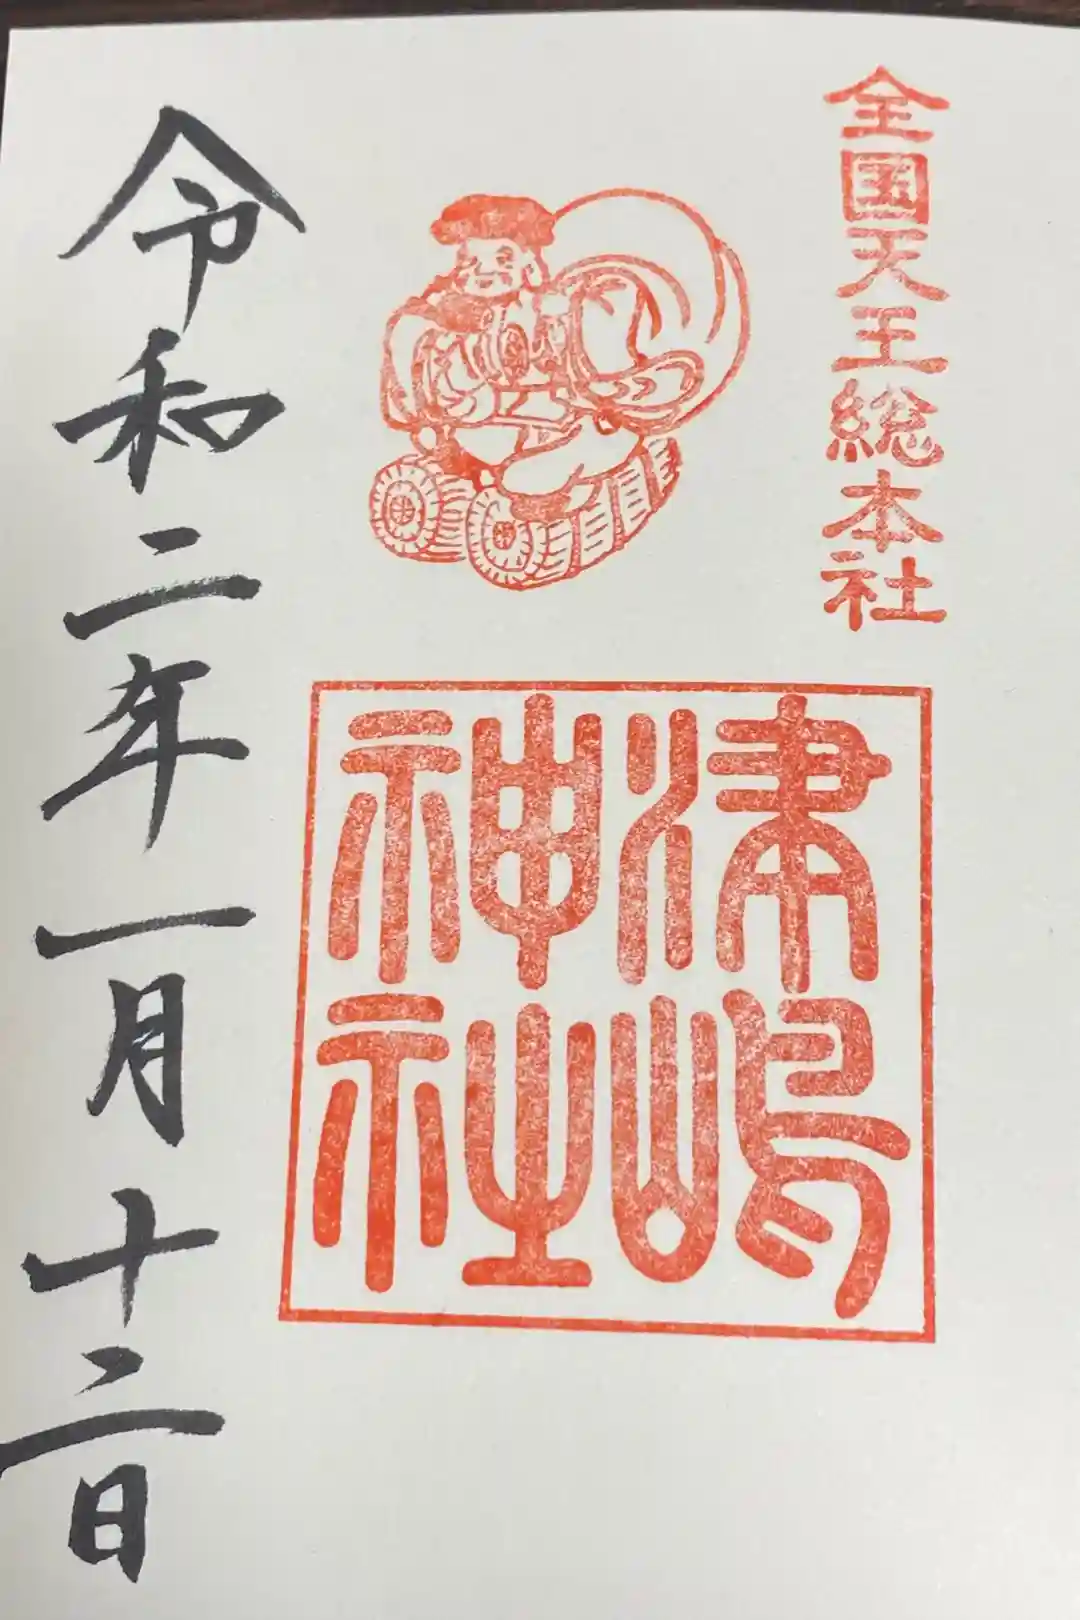 全国天王総本社
津嶋
神社
令和二年一月十二日